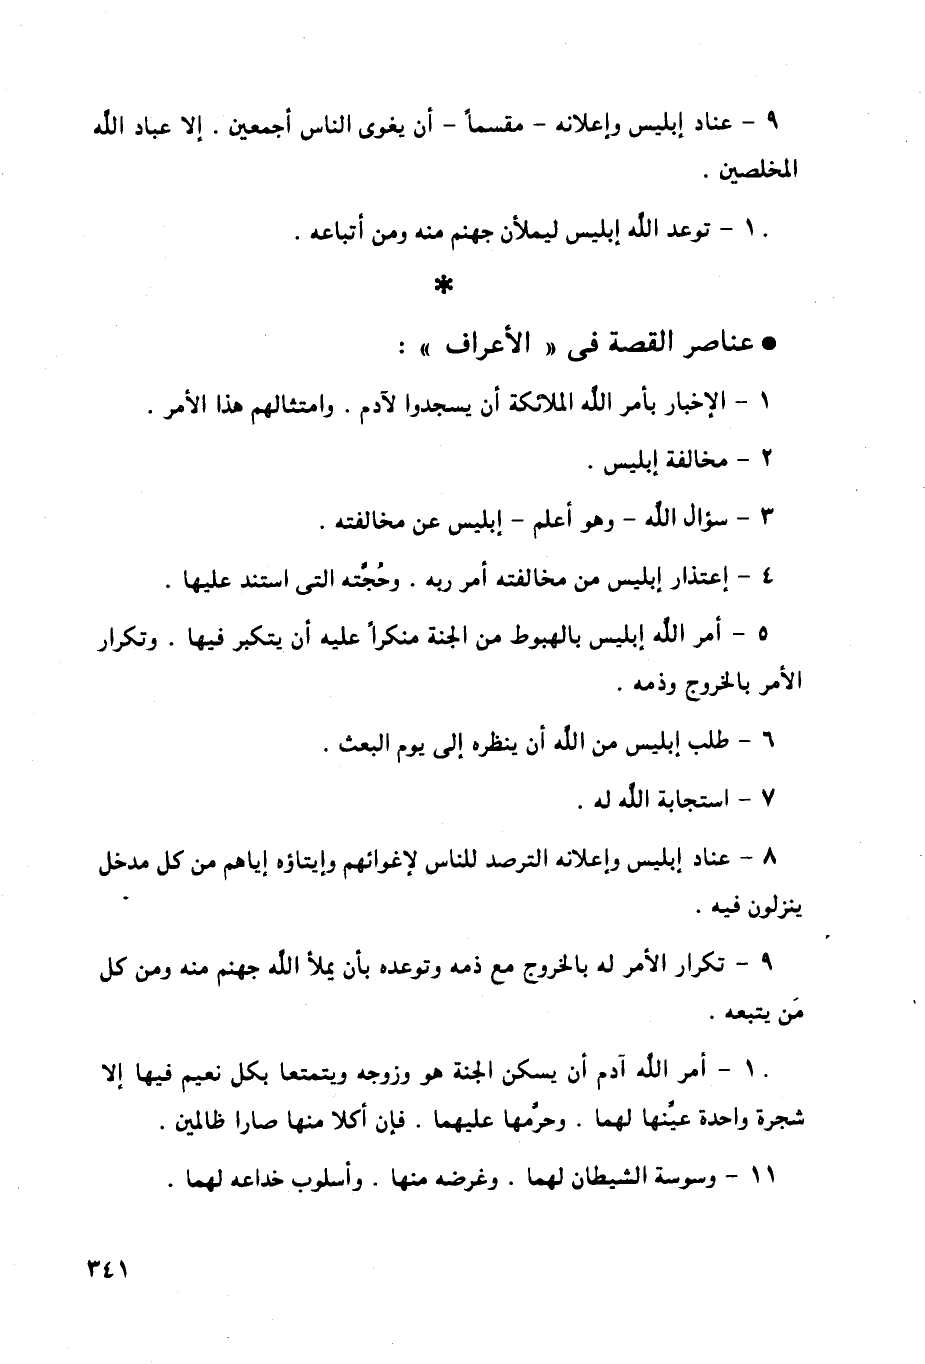 ٩ – عناد إبليس وإعلانه – مقسماً – أن يغوى الناس أجمعين . إلا عباد اللّه
المخلصين .
١٠ – توعد اللّه إبليس ليملأن جهنم منه ومن أتباعه .
*
● عناصر القصة فى « الأعراف » :
١ – الإخبار بأمر اللّه الملائكة أن يسجدوا لآدم . وامتثالهم هذا الأمر .
٢ – مخالفة إبليس .
٣ – سؤال اللّه – وهو أعلم – إبليس عن مخالفته .
٤ – إعتذار إبليس من مخالفته أمر ربه . وحُجَّته التى استند عليها .
٥ – أمر اللّه إبليس بالهبوط من الجنة منكراً عليه أن يتكبر فيها . وتكرار
الأمر بالخروج وذمه .
٦ – طلب إبليس من اللّه أن ينظره إلى يوم البعث .
٧ – استجابة اللّه له .
٨ – عناد إبليس وإعلانه الترصد للناس لإغوائهم وإيتاؤه إياهم من كل مدخل
ينزلون فيه .
٩ – تكرار الأمر له بالخروج مع ذمه وتوعده بأن يملأ اللّه جهنم منه ومن كل
مَن يتبعه .
١٠ – أمر اللّه آدم أن يسكن الجنة هو وزوجه ويتمتعا بكل نعيم فيها إلا
شجرة واحدة عيَّنها لهما . وحرَّمها عليهما . فإن أكلا منها صارا ظالمين .
١١ – وسوسة الشيطان لهما . وغرضه منها . وأسلوب خداعه لهما .
٣٤١